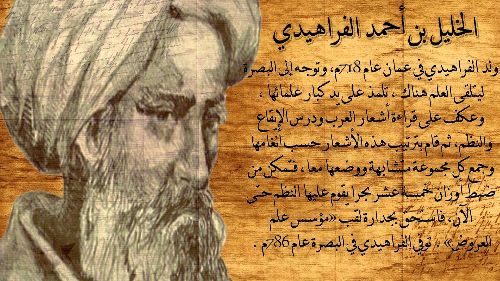 الخليل بن أحمد الفراهيدي
ولد الفراهيدي في عمان عام 718م، وتوجه إلى البصرة
ليتلقى العلم هناك، تلمذ على يد كبار علمائها،
وعكف على قراءة أشعار العرب ودرس الإيقاع
والنظم، ثم قام بترتيب هذه الأشعار حسب أنغامها
وجمع كل مجموعة متشابهة ووضعها معا، فتمكن من
ضبط أوزان خمسة عشر بحرا يقوم عليها النظم حتى
الآن، فاستحق بجدارة لقب «مؤسس علم
العروض». توفي الفراهيدي في البصرة عام 786م.